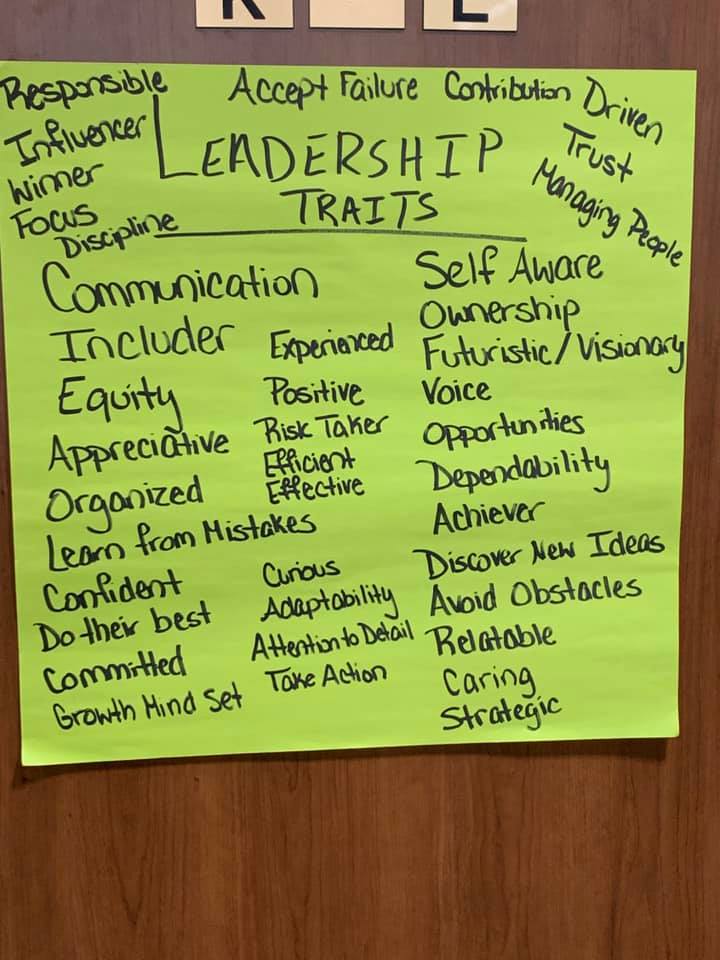 Responsible
Influencer
Winner
Focus
Discipline
Accept Failure
Contribution
Driven
Trust
Managing People
LEADERSHIP
TRAITS
Communication
Includer
Equity
Appreciative
Organized
Learn from Mistakes
Confident
Do their best
Committed
Growth Mind Set
Experienced
Positive
Risk Taker
Efficient
Effective
Curious
Adaptability
Attention to Detail
Take Action
Self Aware
Ownership
Futuristic/Visionary
Voice
Opportunities
Dependability
Achiever
Discover New Ideas
Avoid Obstacles
Relatable
Caring
Strategic